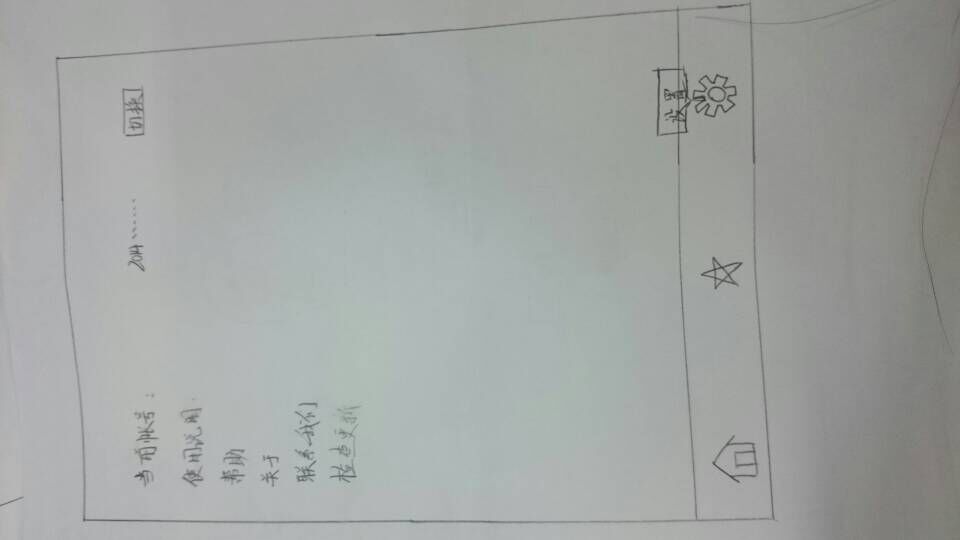 当前帐号： 2014…… 切换
使用说明
帮助
关于
联系我们
检查更新
设置